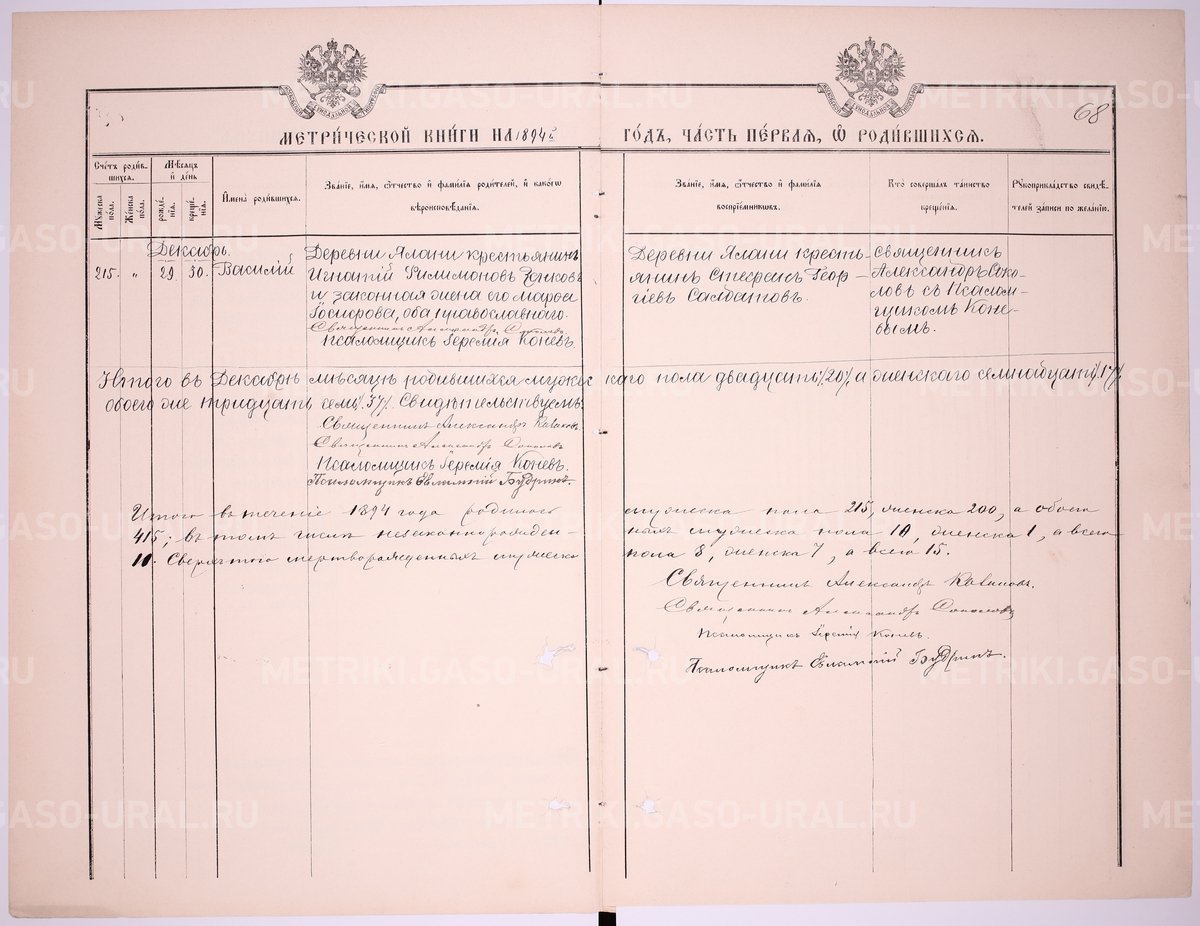 68
МЕТРИ́ЧЕСКОЙ КНИ́ГИ НА 1894й ГО́ДЪ, ЧА́СТЬ ПЕ́РВАЯ, Ѡ РОДИ́ВШИХСЯ.
Сче́тъ роди́вшихся.
Мѣ́сяцъ и де́нь
Мꙋ́жеска по́ла.
Же́нска по́ла.
рожде́нія.
креще́нія.
И҆мена̀ роди́вшихся.
Зва́ніе, и҆́мя, ѻ҆́тчество и҆ фами́лія роди́телей, и҆ како́гѡ
вѣроисповѣ́данія.
Зва́ніе, и҆́мя, ѻ҆́тчество и҆ фами́лія
воспрїе́мниковъ.
Кто̀ соверша́лъ та́инство
креще́нія.
Рꙋкоприкла́дство свидѣ́-
телей за́писи по жела́нію.
Декабрь.
215. „ 29. 30. Василій
Деревни Ялани крестьянинъ
Игнатій Филимоновъ
и законная жена его Марѳа
оба православнаго.
Священникъ Александръ Соколовъ
Псаломщикъ Іеремія Коневъ
Деревни Ялани кресть-
янинъ Стефанъ Геор-
гіевъ Салдатовъ.
Священникъ
Александръ Соко-
ловъ съ Псалом-
щикомъ Коне-
вымъ.
Итого въ Декабрѣ мѣсяцѣ родившихся мужескаго пола двадцать /20/, а женскаго семнадцать /17/
обоего же тридцать семь /37/. Свидѣтельствуемъ:
Священникъ Александръ
Священникъ Александръ Соколовъ
Псаломщикъ Іеремія Коневъ.
Псаломщикъ Евлампій Будринъ.
Итого въ теченіе 1894 года родилось мужеска пола 215, женска 200, а обоихъ
415; въ томъ числѣ незаконнорожден- ныхъ мужеска пола 10, женска 1, а всего
11. Сверхъ того мертворожденныхъ мужеска пола 8, женска 7, а всего 15.
Священникъ Александръ
Священникъ Александръ Соколовъ
Псаломщикъ Іеремія Коневъ.
Псаломщикъ Евлампій Будринъ.
METRIKI.GASO-URAL.RU